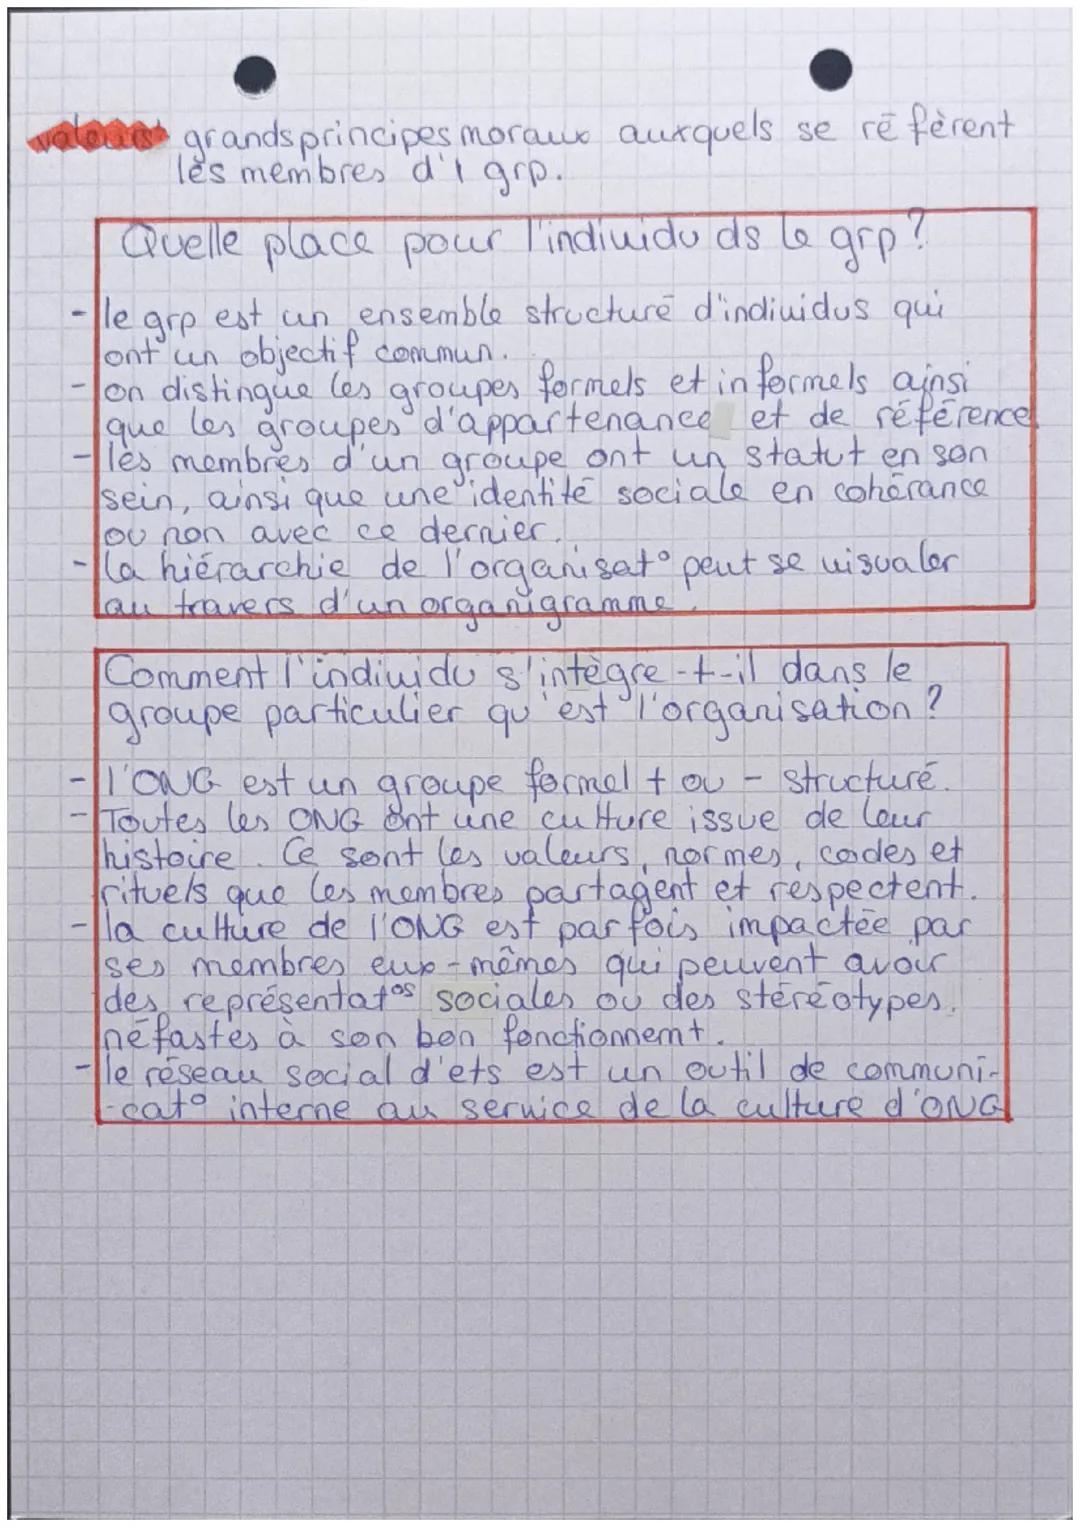 valeurs grands principes moraux auxquels se réfèrent
les membres d'1 grp.
Quelle place pour l'individu ds le grp?
- le grp est un ensemble structuré d'individus qui
ont un objectif commun.
- on distingue les groupes formels et informels ainsi
que les groupes d'appartenance et de référence.
- les membres d'un groupe ont un statut en son
sein, ainsi que une identité sociale en cohérance
ou non avec ce dernier.
- la hiérarchie de l'organisat° peut se visualer
au travers d'un organigramme.
Comment l'individu s'intègre-t-il dans le
groupe particulier qu'est l'organisation?
- l'ONG est un groupe formel + ou - structuré.
- Toutes les ONG ont une culture issue de leur
histoire. Ce sont les valeurs, normes, codes et
rituels que les membres partagent et respectent.
- la culture de l'ONG est parfois impactée par
ses membres eux-mêmes qui peuvent avoir
des représentat°s sociales ou des stéréotypes.
néfastes à son bon fonctionnemt.
- le réseau social d'ets est un outil de communi-
-cat° interne au service de la culture d'ONG